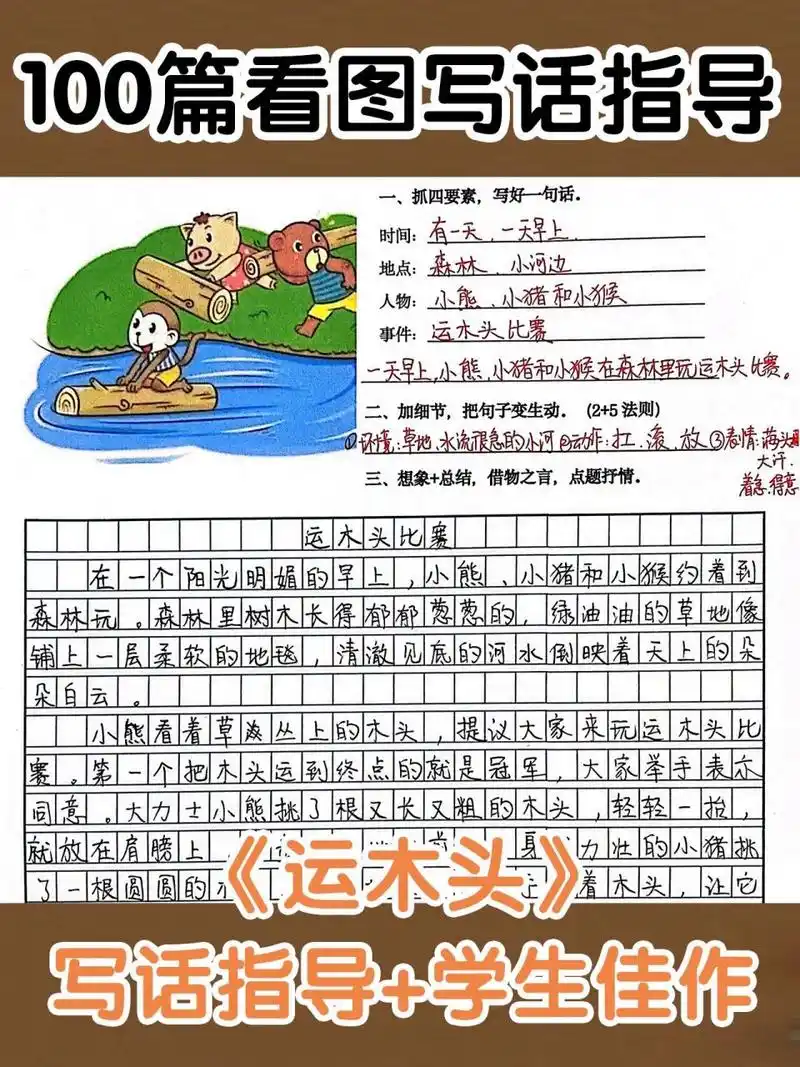 100篇看图写话指导
一、抓四要素，写好一句话．
时间：有一天、一天早上
地点：森林、小河边
人物：小熊、小猪和小猴
事件：运木头比赛
一天早上，小熊、小猪和小猴在森林里玩运木头比赛。
二、加细节，把句子变生动．（2+5法则）
①环境：草地、水流很急的小河 ②动作：扛、滚、放 ③表情：满头
大汗、
着急、得意
三、想象+总结，借物之言，点题抒情．
运木头比赛
在一个阳光明媚的早上，小熊、小猪和小猴约着到
森林玩。森林里树木长得郁郁葱葱的，绿油油的草地像
铺上一层柔软的地毯，清澈见底的河水倒映着天上的朵
朵白云。
小熊看着草丛上的木头，提议大家来玩运木头比
赛。第一个把木头运到终点的就是冠军，大家举手表示
同意。大力士小熊挑了根又长又粗的木头，轻轻一抬，
就放在肩膀上 力壮的小猪挑
了一根圆圆的 着木头，让它
《运木头》
写话指导+学生佳作